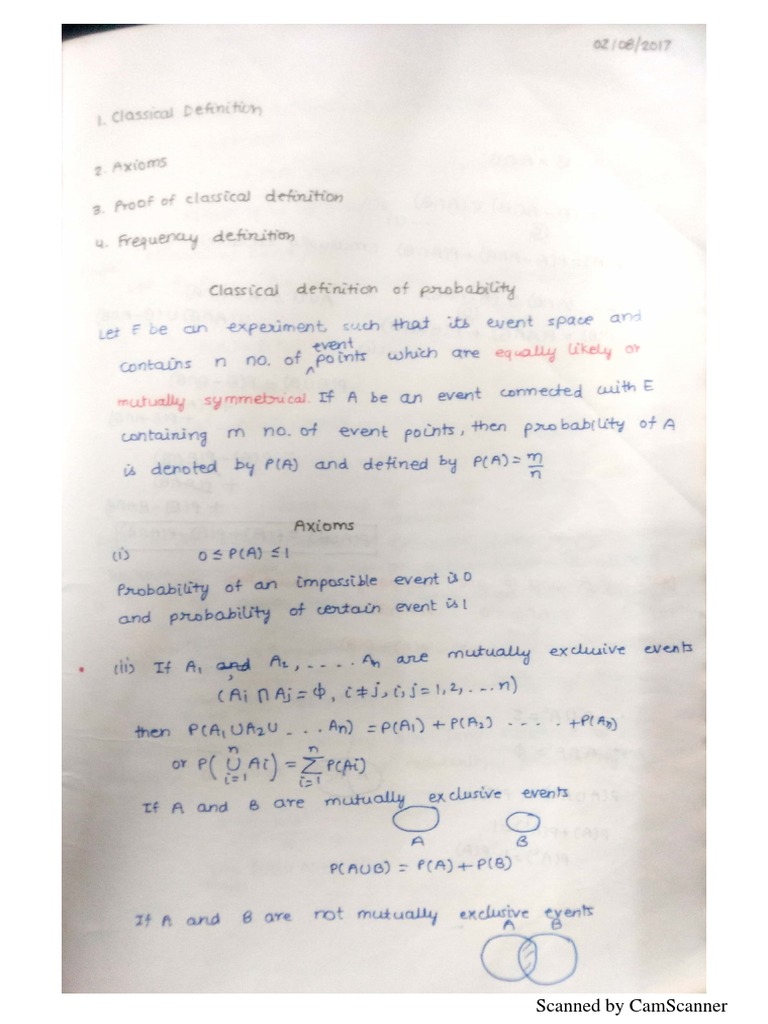 02/08/2017
1. Classical Definition
2. Axioms
3. Proof of classical definition
4. Frequenay definition
Classical definition of probability
Let E be an experiment, such that its event space and
contains n no. of event points which are equally likely or
mutually symmetrical. If A be an event connected with E
containing m no. of event points, then probability of A
is denoted by P(A) and defined by P(A) = m/n
Axioms
(i) 0 ≤ P(A) ≤ 1
Probability of an impossible event is 0
and probability of certain event is 1
(ii) If A₁, A₂, ..... Aₙ are mutually exclusive events
(Ai ∩ Aj = Φ, i ≠ j, i, j = 1, 2, ... n)
then P(A₁ ∪ A₂ ∪ ... Aₙ) = P(A₁) + P(A₂) ..... + P(Aₙ)
or P(⋃ⁿᵢ₌₁ Ai) = ∑ⁿᵢ₌₁ P(Ai)
If A and B are mutually exclusive events
A B
P(A∪B) = P(A) + P(B)
If A and B are not mutually exclusive events
A B
Scanned by CamScanner